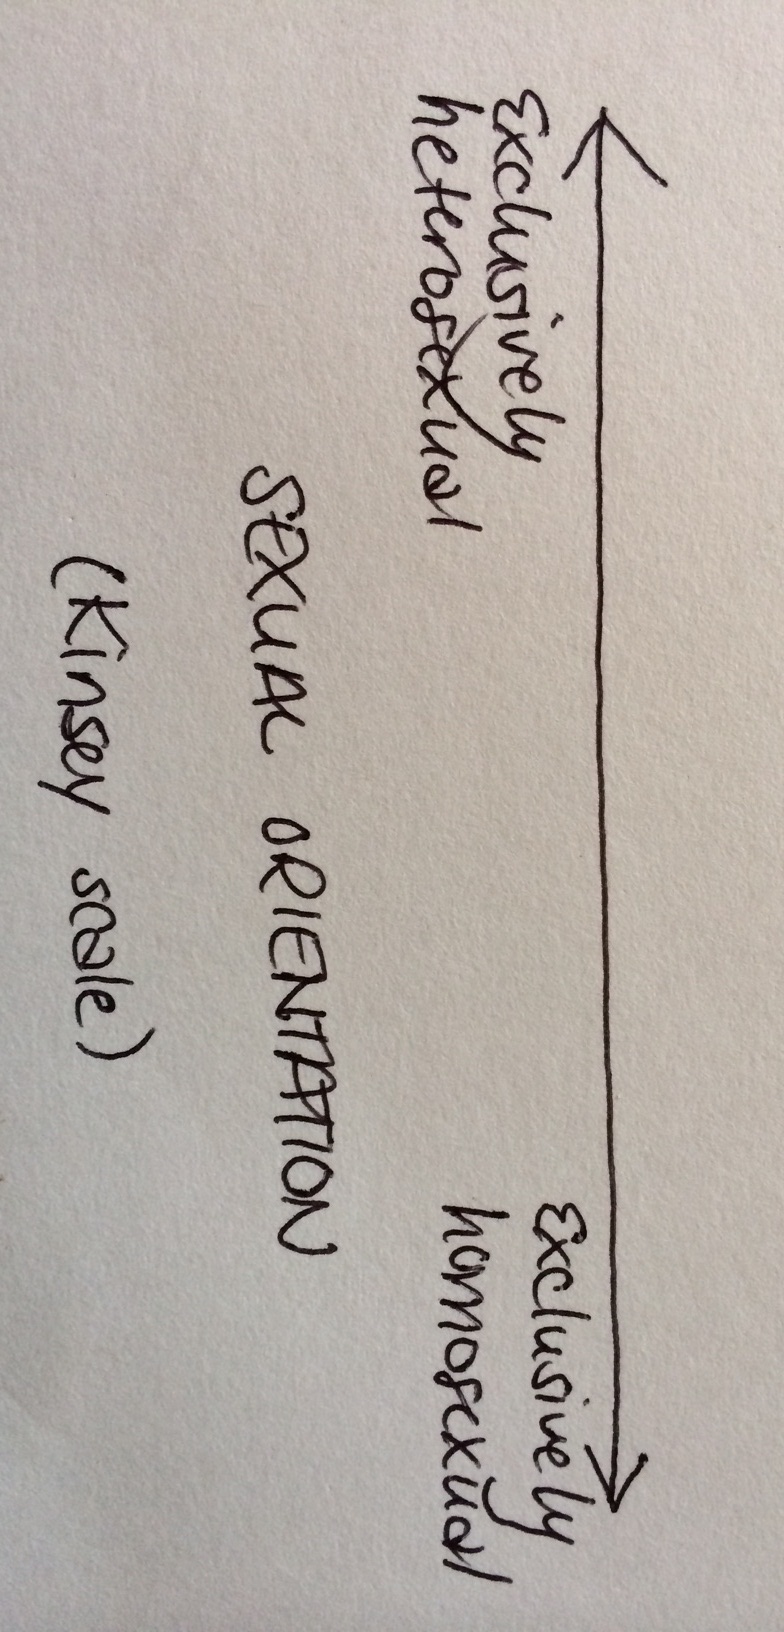 Exclusively
heterosexual
Exclusively
homosexual
SEXUAL ORIENTATION
(Kinsey scale)